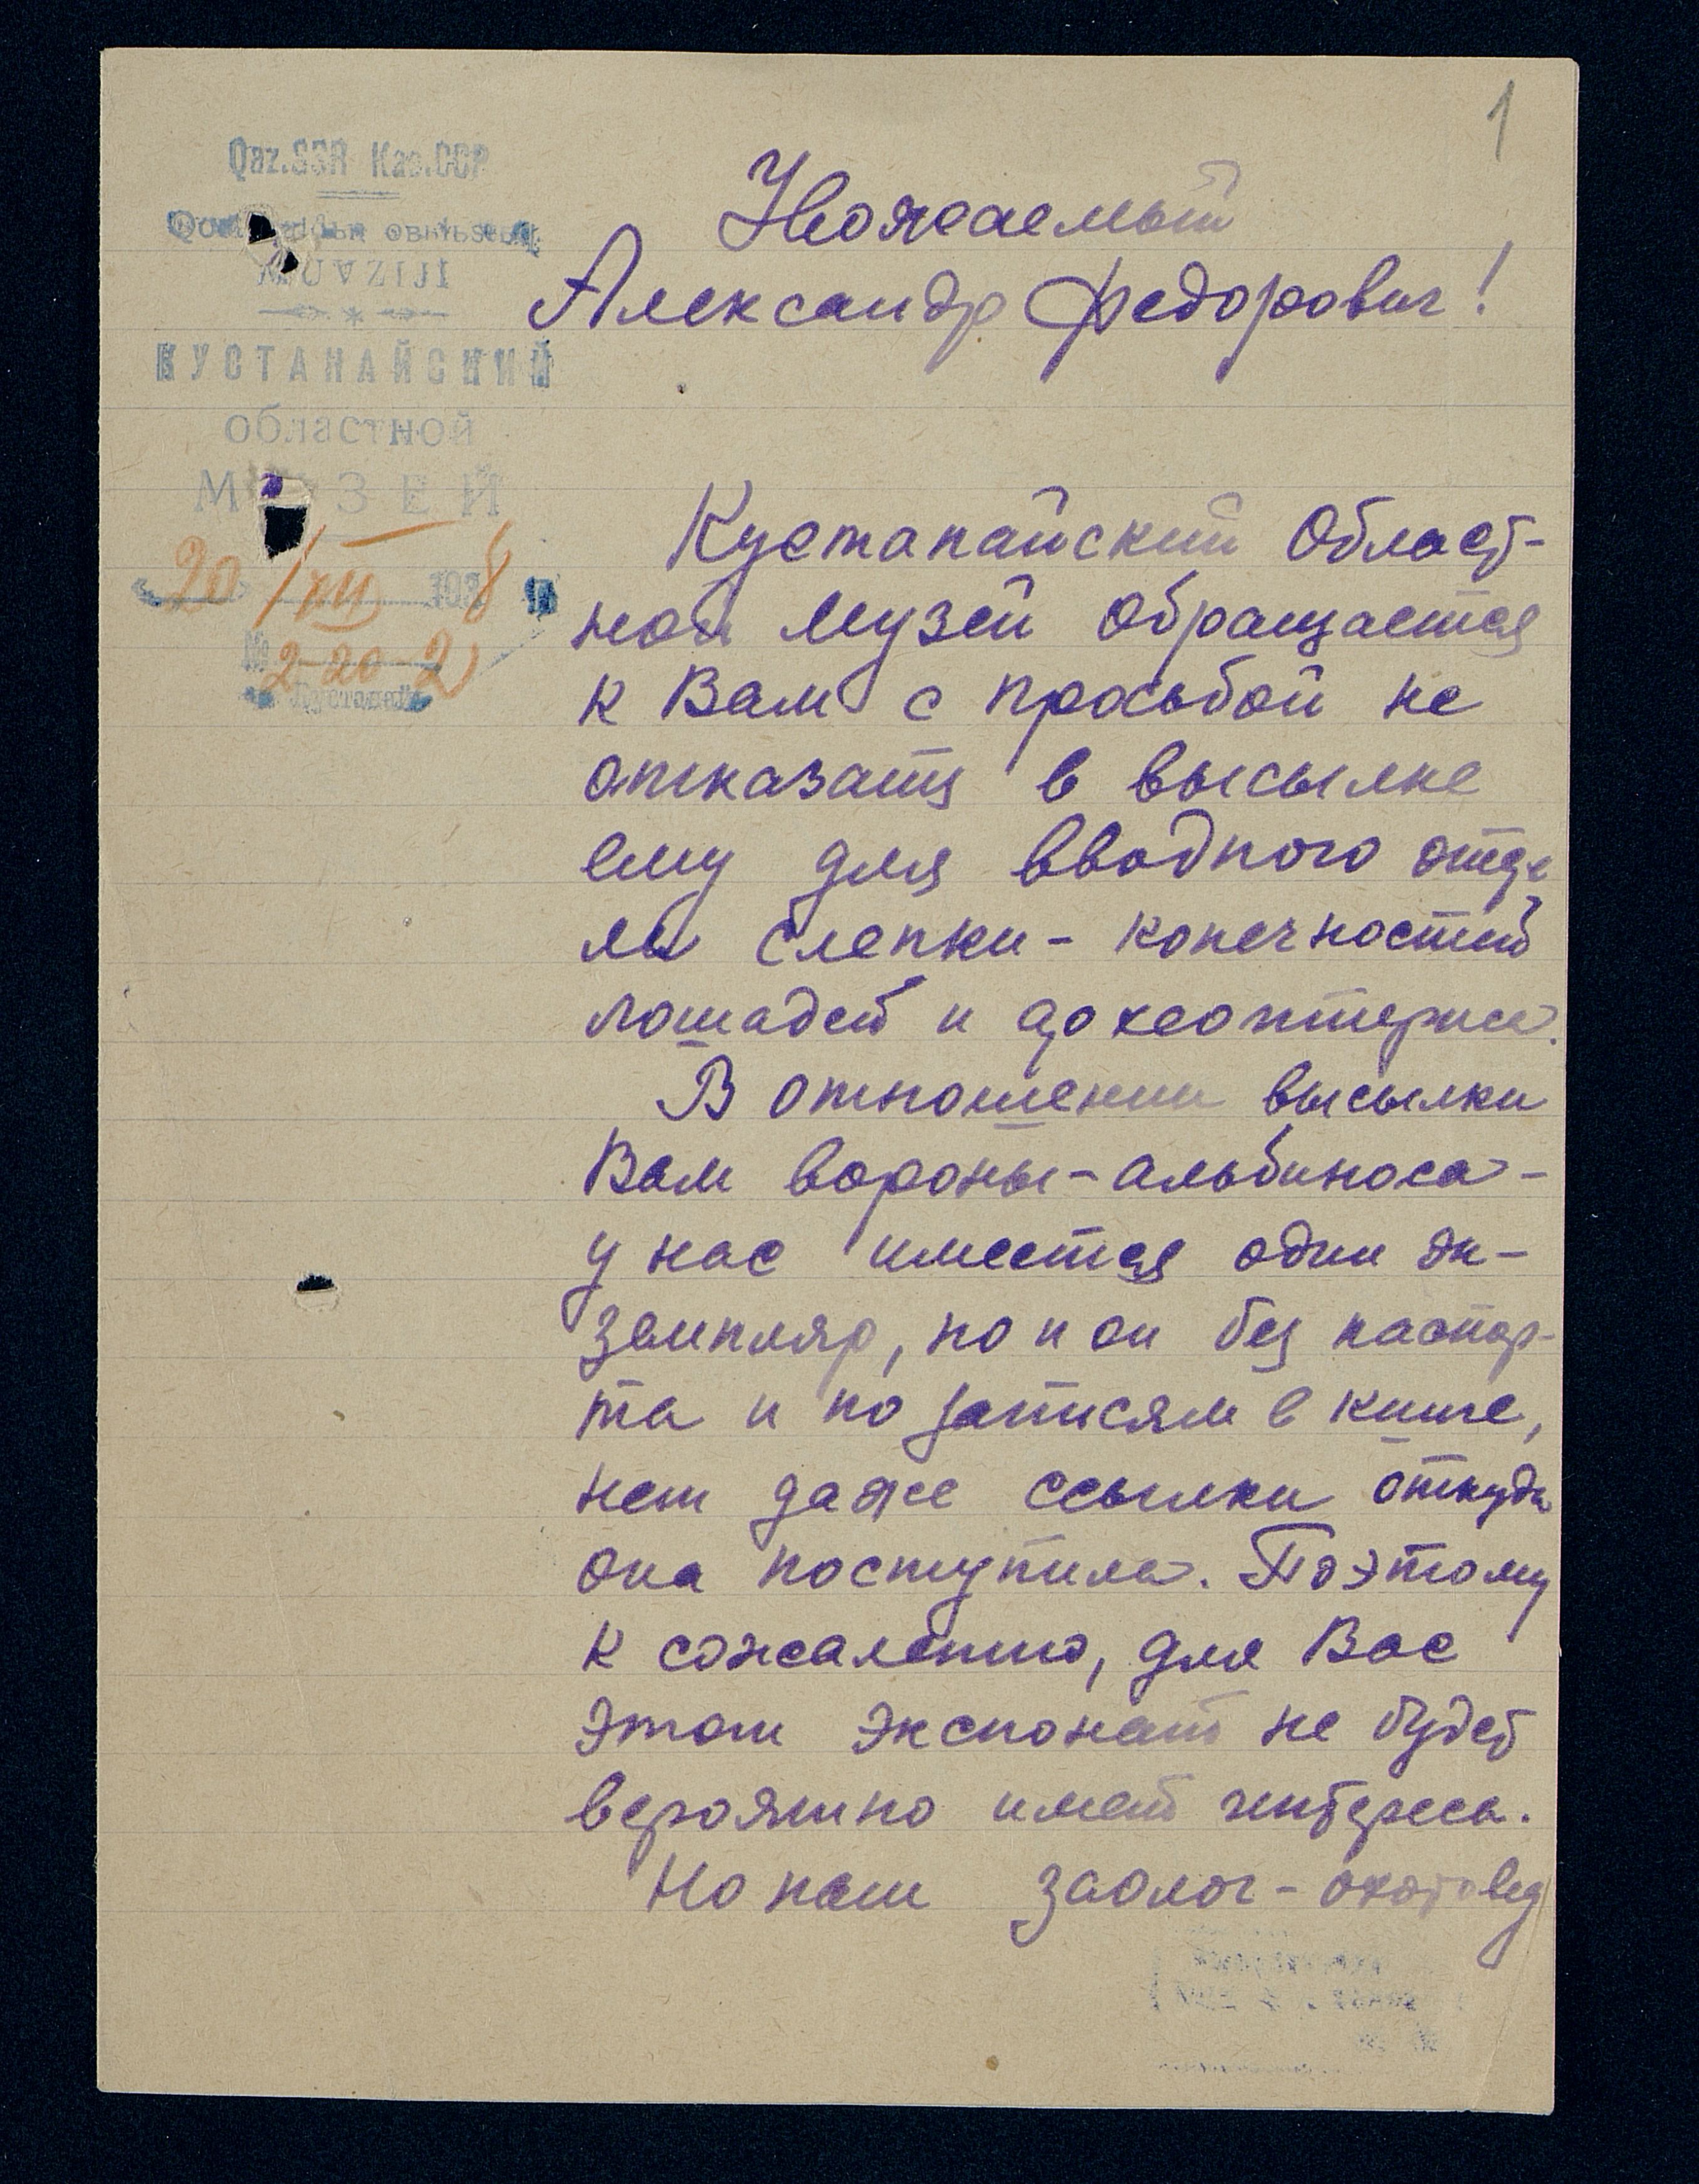 1
Qaz.SSR Каз.ССР
MUVZIJI
КУСТАНАЙСКИЙ
областной
МУЗЕЙ
20/XII 1938
№ 2-20-2
г. Кустанай
Уважаемый
Александр Федорович!
Кустанайский Област-
ной Музей обращается
к Вам с просьбой не
отказать в высылке
ему для вводного отде
ла слепки - конечностей
лошадей и археоптерикса.
В отношении высылки
Вам вороны-альбиноса -
у нас имеется один эк-
земпляр, но и он без паспор-
та и по записям в книге,
нет даже ссылки откуда
она поступила. Поэтому
к сожалению, для Вас
этот экспонат не будет
вероятно иметь интереса.
Но наш заолог - охотовед